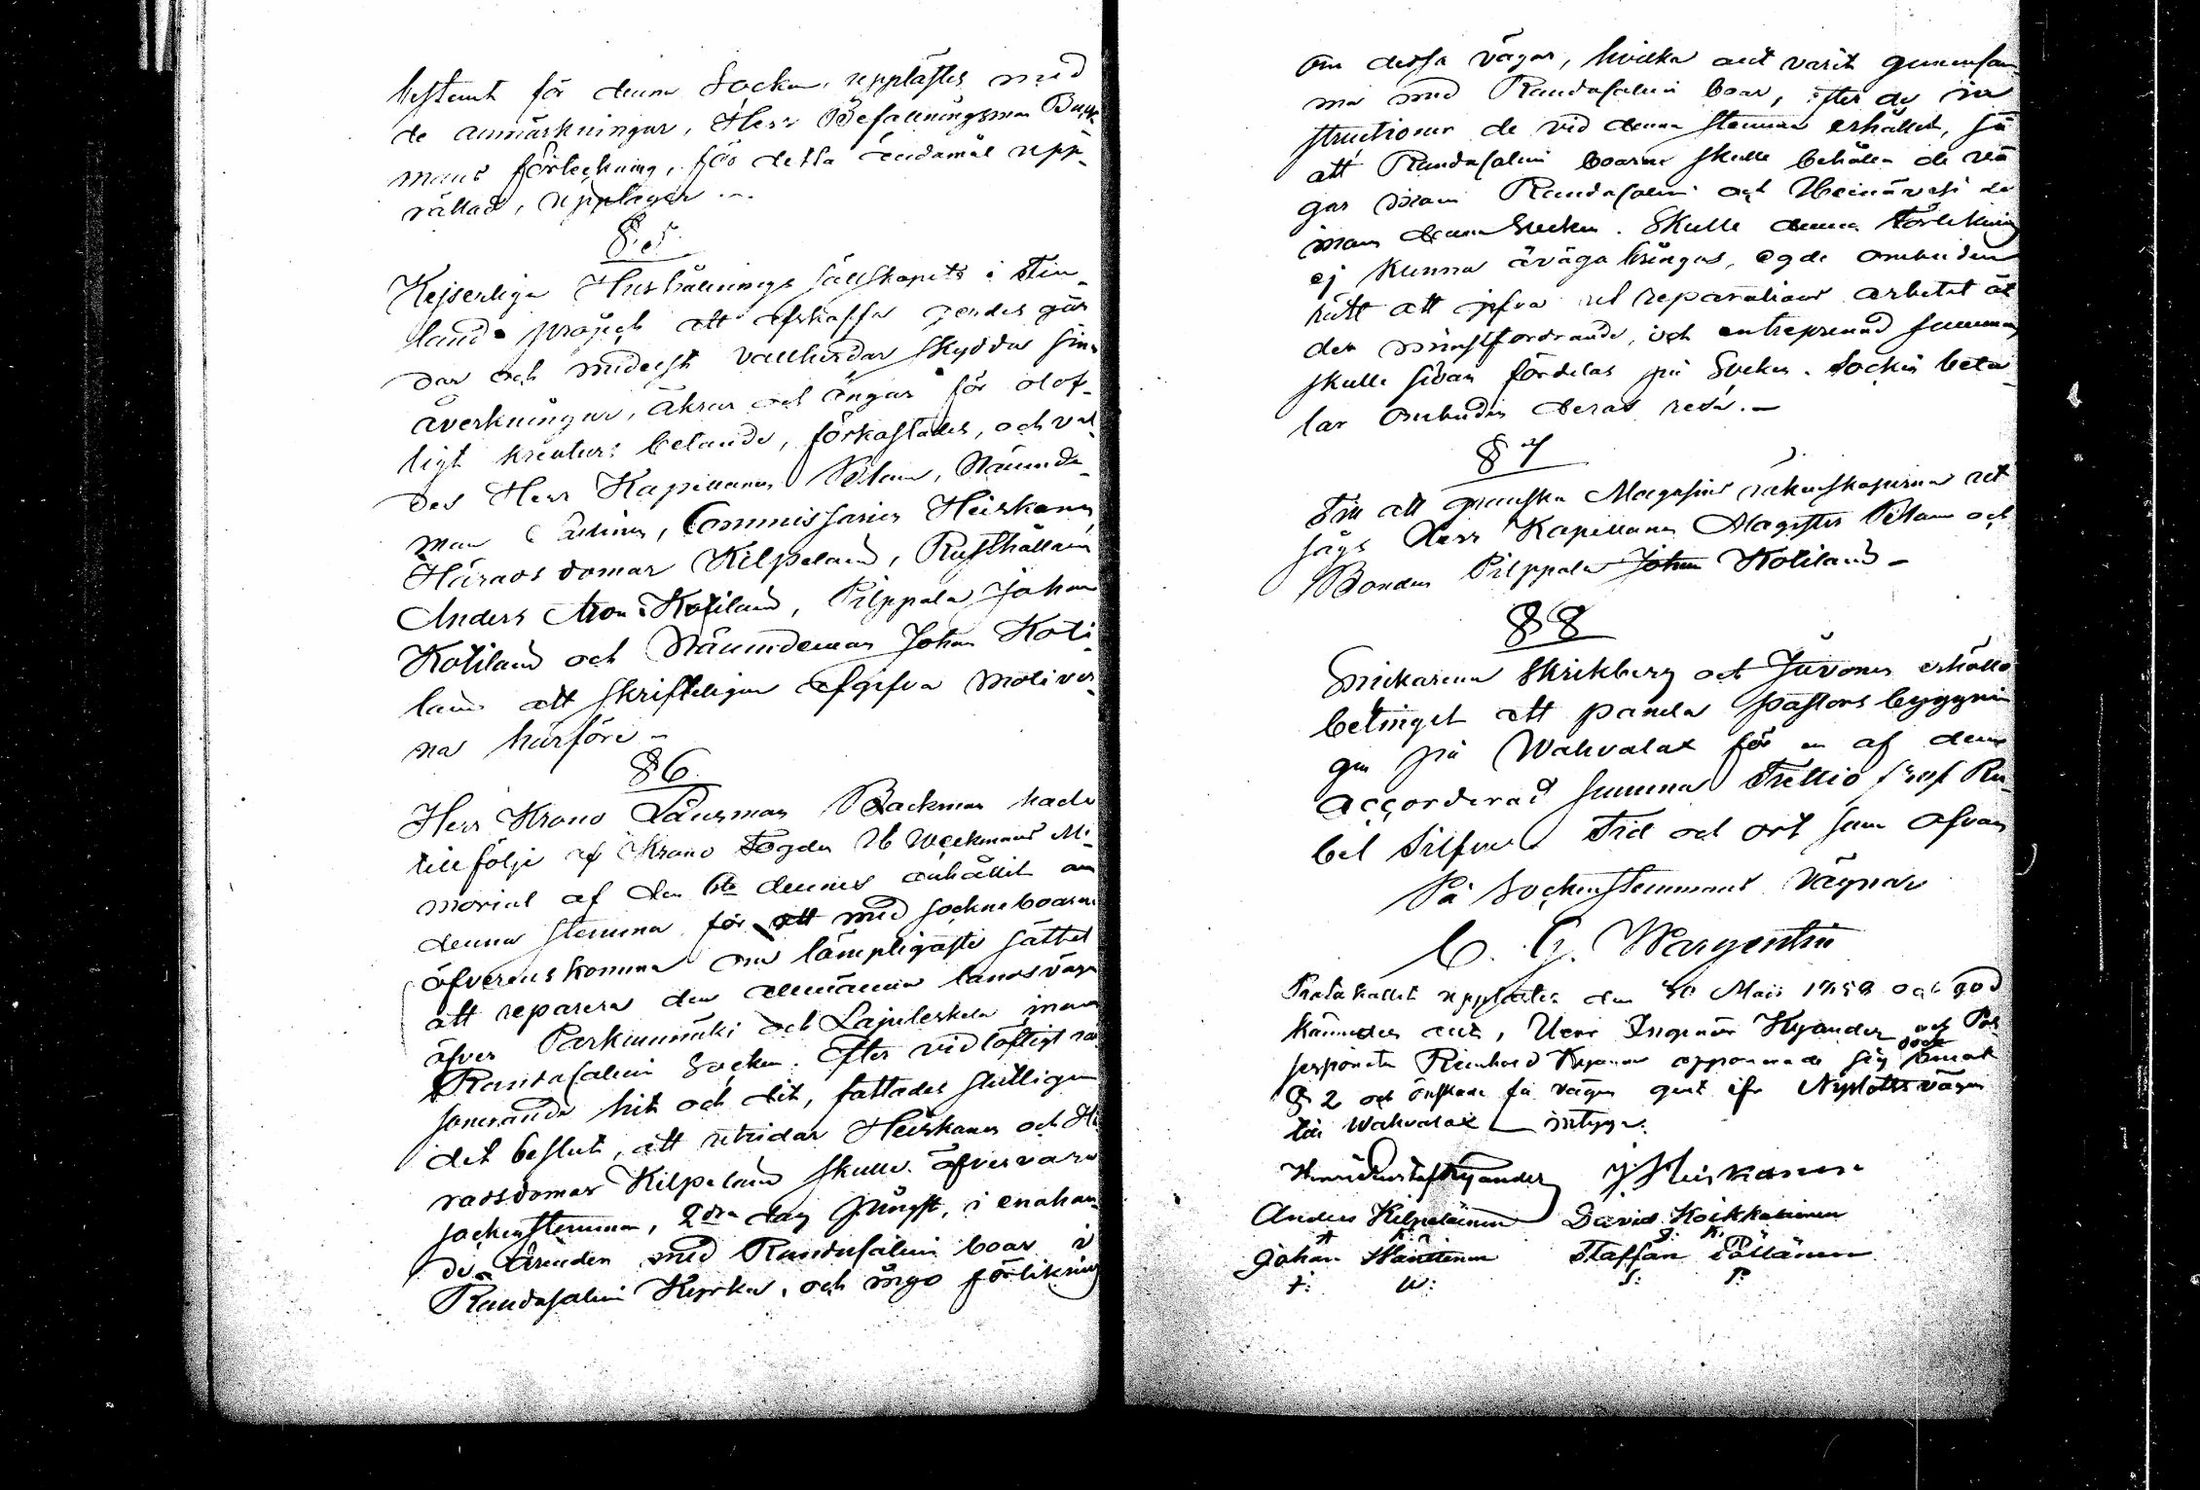 bestemt för denna Socken, upplästes med
de anmärkningar, Herr Befallningsman Back-
mans förteckning, för detta ändamål upp-
rättad, upptager. –
§ 5.
Kejserliga Hushållnings Sällskapets i Fin-
land project att afskaffa gerdes går
dar och medelst vallherdar skydda sin
åverkningar, åkrar och ängar för olof-
ligt kreaturs betande, förkastades, och val-
des Herr Kapellanen, Nämnde-
man, Commissarien Heiskanen,
Häradsdomar Kilpeläin, Rusthållarn
Anders Aron Kotilain, Pilppala Johan
Kotilain och Nämndeman Johan Koti-
lain att skrifteligen afgifva motiver-
na härföre –
§ 6.
Herr Krono Länsman Backman hade
till följe af Krono Fogden Weckmans Me-
morial af den 6te dennes anhållit om
denna stemma för att med socknеboarne
öfverenskomma om lämpligaste sättet
att reparera den allmänna landsvägen
öfver Parkumäki och Lajuleskela inom
Randasalmi Socken. Efter vidlöftigt re-
sonerande hit och dit, fattades slutligen
det beslut, att Heiskanen och Hä-
radsdomar Kilpeläin skulle öfvervara
sockenstemman, 2dra dag Pingst, i enahan-
da ärenden med Randasalmi boar i
Randasalmi Kyrka, och ingå förlikning
om dessa vägar, hvilka ant varit gemensam-
ma med Randasalmi boar, efter de in
structioner de vid denna stemma erhållit, så
att Randasalmi boarne skulle behålla de vä
gar inom Randasalmi och Heinävesi de
inom denna Socken. Skulle denna förlikning
ej kunna åvägabringas, egde ombuden
rätt att gifva ut reparations arbetet åt
den minstfordrande, och entreprenad summan
skulle sedan fördelas på Socken. Socken beta-
lar ombuden deras resa. –
§ 7
Till att granska Magasins räkenskaperna ut
sågs Herr Kapellanen Magister och
Bonden Pilppala Johan Kotilain –
§ 8
Snickarena Skrikberg och Juvonen erhöllo
betinget att panela pastors byggnin
gen på Wahvalax för en af dem
accorderad summa Trettio Ru-
bel Silfver. Tid och ort som ofvan
På Sockenstemmans vägnar
C. G. Wargentin
Protokollet upplästes den 30 Maii 1858 och god
kännes, Herr Ingeniör Kyander och Pos
sessionaten Reinhard Kyander opponerade sig
§ 2 och önskade få vägen Nyslottsvägen
till Wahvalax intyga:
Henric Gustaf Kyander J Heiskanen
Anders Kilpeläinen David Koikkalainen
A K: D: K:
Johan Häntinen Staffan Pöllänen
J: H: S: P: